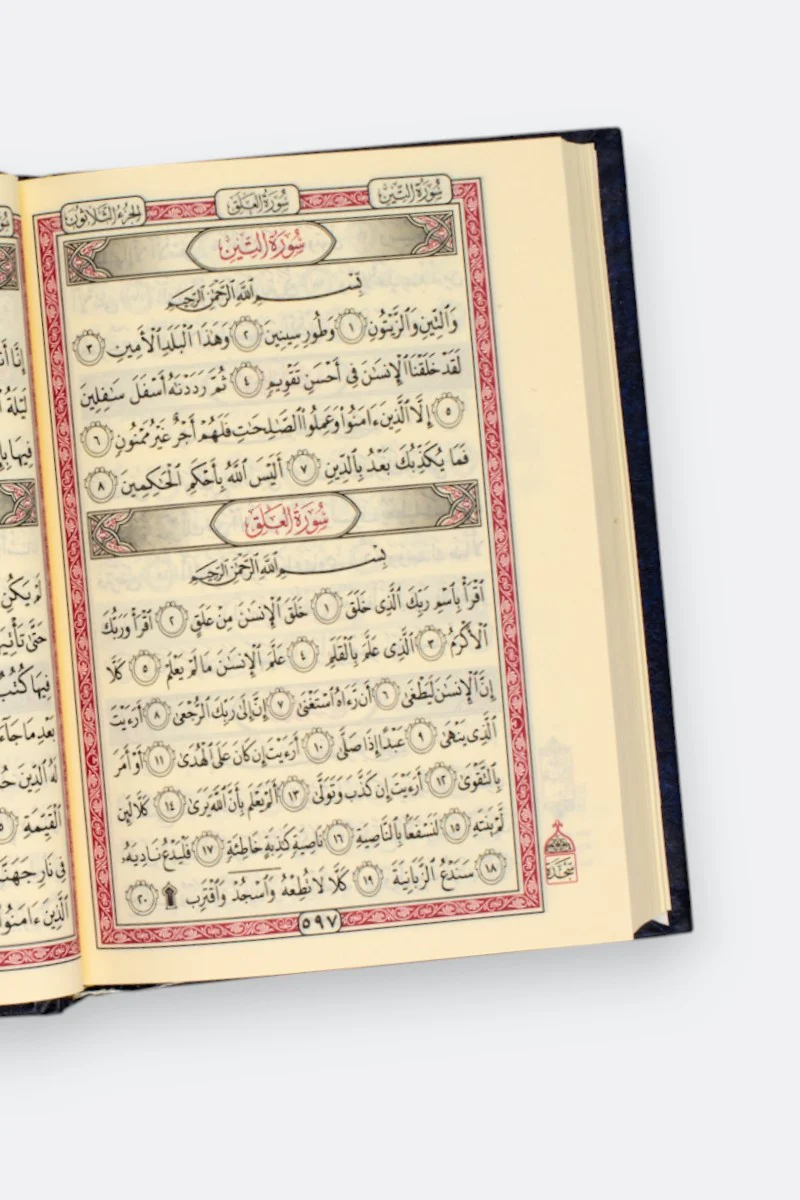 سُورَةُ التِّينِ
سُورَةُ العَلَقِ
الجُزءُ الثَّلاثُونَ
سُورَةُ التِّينِ
بِسْمِ ٱللَّهِ ٱلرَّحْمَٰنِ ٱلرَّحِيمِ
وَٱلتِّينِ وَٱلزَّيْتُونِ ١ وَطُورِ سِينِينَ ٢ وَهَٰذَا ٱلْبَلَدِ ٱلْأَمِينِ ٣
لَقَدْ خَلَقْنَا ٱلْإِنسَٰنَ فِىٓ أَحْسَنِ تَقْوِيمٍ ٤ ثُمَّ رَدَدْنَٰهُ أَسْفَلَ سَٰفِلِينَ
٥ إِلَّا ٱلَّذِينَ ءَامَنُوا۟ وَعَمِلُوا۟ ٱلصَّٰلِحَٰتِ فَلَهُمْ أَجْرٌ غَيْرُ مَمْنُونٍ ٦
فَمَا يُكَذِّبُكَ بَعْدُ بِٱلدِّينِ ٧ أَلَيْسَ ٱللَّهُ بِأَحْكَمِ ٱلْحَٰكِمِينَ ٨
سُورَةُ العَلَقِ
بِسْمِ ٱللَّهِ ٱلرَّحْمَٰنِ ٱلرَّحِيمِ
ٱقْرَأْ بِٱسْمِ رَبِّكَ ٱلَّذِى خَلَقَ ١ خَلَقَ ٱلْإِنسَٰنَ مِنْ عَلَقٍ ٢ ٱقْرَأْ وَرَبُّكَ
ٱلْأَكْرَمُ ٣ ٱلَّذِى عَلَّمَ بِٱلْقَلَمِ ٤ عَلَّمَ ٱلْإِنسَٰنَ مَا لَمْ يَعْلَمْ ٥ كَلَّآ
إِنَّ ٱلْإِنسَٰنَ لَيَطْغَىٰٓ ٦ أَن رَّءَاهُ ٱسْتَغْنَىٰٓ ٧ إِنَّ إِلَىٰ رَبِّكَ ٱلرُّجْعَىٰٓ ٨ أَرَءَيْتَ
ٱلَّذِى يَنْهَىٰ ٩ عَبْدًا إِذَا صَلَّىٰٓ ١٠ أَرَءَيْتَ إِن كَانَ عَلَى ٱلْهُدَىٰٓ ١١ أَوْ أَمَرَ
بِٱلتَّقْوَىٰٓ ١٢ أَرَءَيْتَ إِن كَذَّبَ وَتَوَلَّىٰٓ ١٣ أَلَمْ يَعْلَم بِأَنَّ ٱللَّهَ يَرَىٰ ١٤ كَلَّا لَئِن
لَّمْ يَنتَهِ ١٥ لَنَسْفَعًۢا بِٱلنَّاصِيَةِ ١٦ نَاصِيَةٍ كَٰذِبَةٍ خَاطِئَةٍ ١٧ فَلْيَدْعُ نَادِيَهُۥ
١٨ سَنَدْعُ ٱلزَّبَانِيَةَ ١٩ كَلَّا لَا تُطِعْهُ وَٱسْجُدْ وَٱقْتَرِب ۩ ٢٠
سَجْدَة
٥٩٧
لَيْلَةُ
لَمْ يَكُنِ
حَتَّىٰ
فِيهَا كُتُبٌ
بَعْدِ مَا جَآءَ
لَهُ ٱلدِّينَ
ٱلْقَيِّمَةِ ٥
فِى نَارِ
ٱلَّذِينَ ءَامَنُوا۟